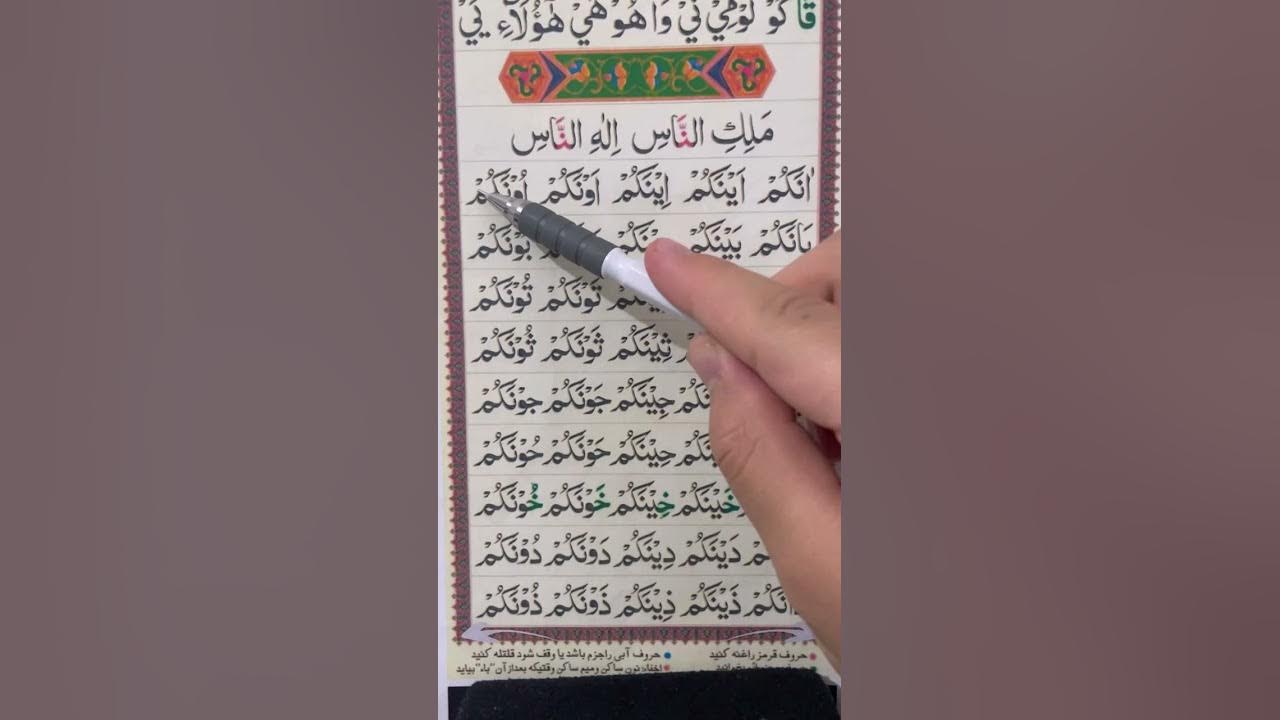 قَا كَوْ لَوْ هِيْ نِيْ وَا هُوْ هَيْ هٰٓؤُلَآءِ يَيْ
مَلِكِ النَّاسِ اِلٰهِ النَّاسِ
اٰنَكُمْ اَيْنَكُمْ اِيْنَكُمْ اَوْنَكُمْ اُوْنَكُمْ
بَانَكُمْ بَيْنَكُمْ بَوْنَكُمْ
تَوْنَكُمْ تُوْنَكُمْ
ثِيْنَكُمْ ثَوْنَكُمْ ثُوْنَكُمْ
جِيْنَكُمْ جَوْنَكُمْ جُوْنَكُمْ
حِيْنَكُمْ حَوْنَكُمْ حُوْنَكُمْ
خَيْنَكُمْ خِيْنَكُمْ خَوْنَكُمْ خُوْنَكُمْ
دَيْنَكُمْ دِيْنَكُمْ دَوْنَكُمْ دُوْنَكُمْ
ذَانَكُمْ ذَيْنَكُمْ ذِيْنَكُمْ ذَوْنَكُمْ ذُوْنَكُمْ
حروف قرمز را غنه کنید حروف آبی را جزم باشد یا وقف شود قلقله کنید
اخفاء نون ساکن و میم ساکن وقتیکه بعد از آن "باء" بیاید